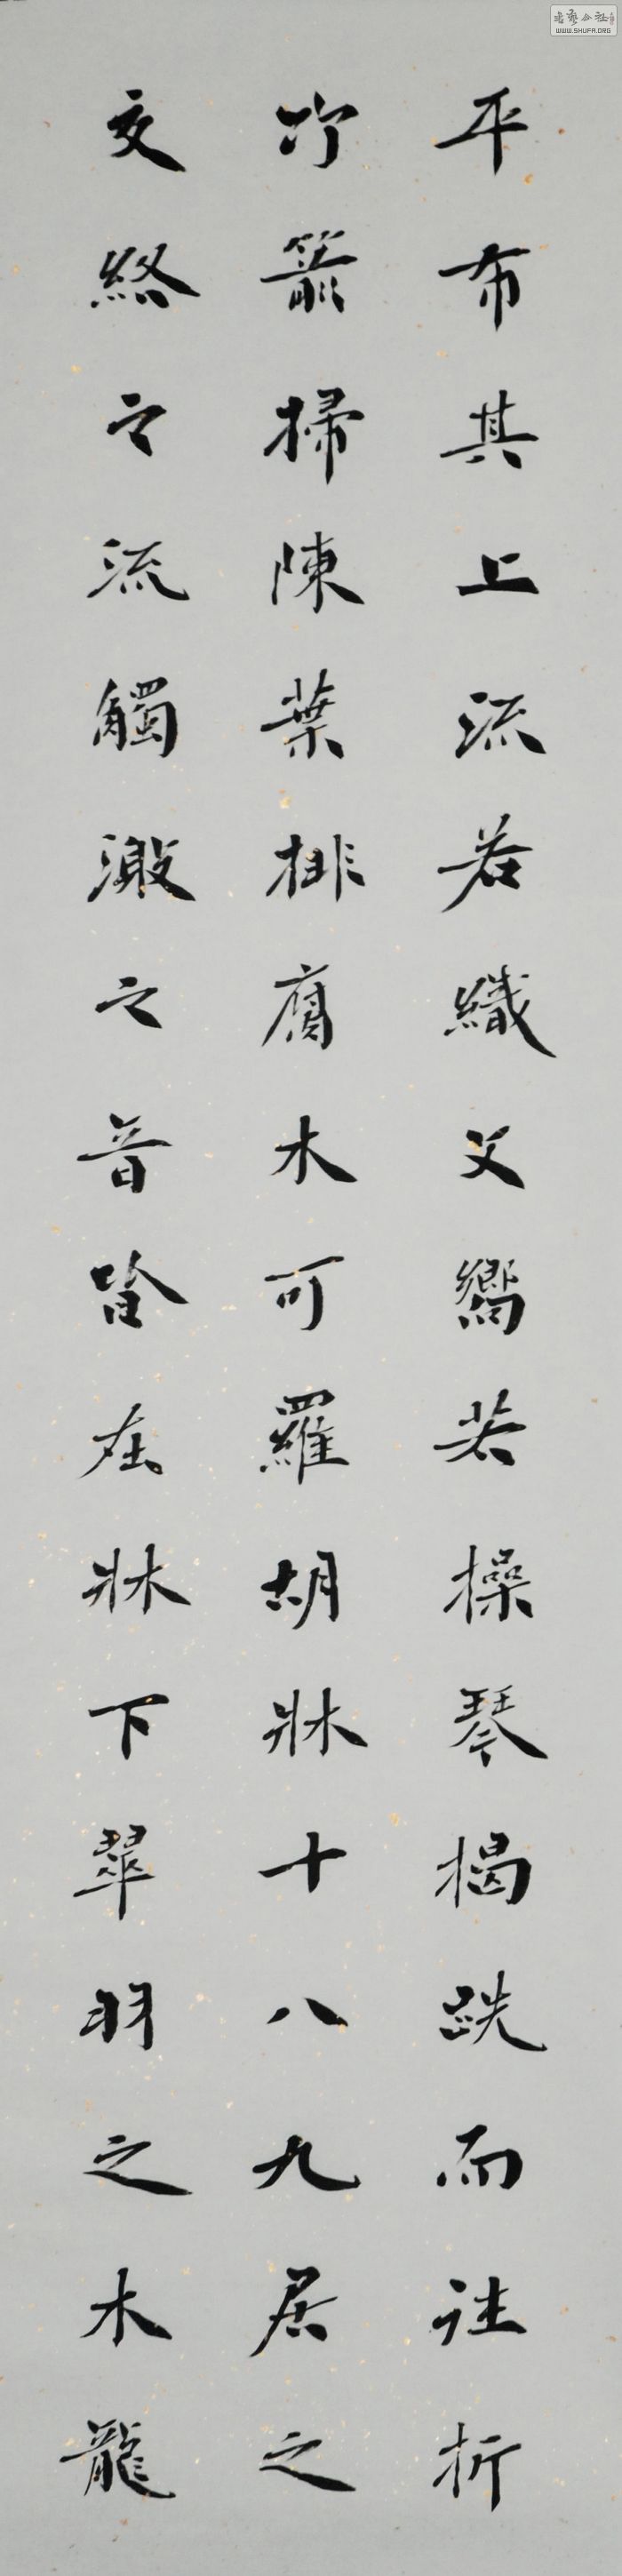 平布其上流若織文響若操琴揭跣而往折
竹箭掃陳葉排腐木可羅胡牀十八九居之
交絡之流觸激之音皆在牀下翠羽之木龍
WWW.SHUFA.ORG